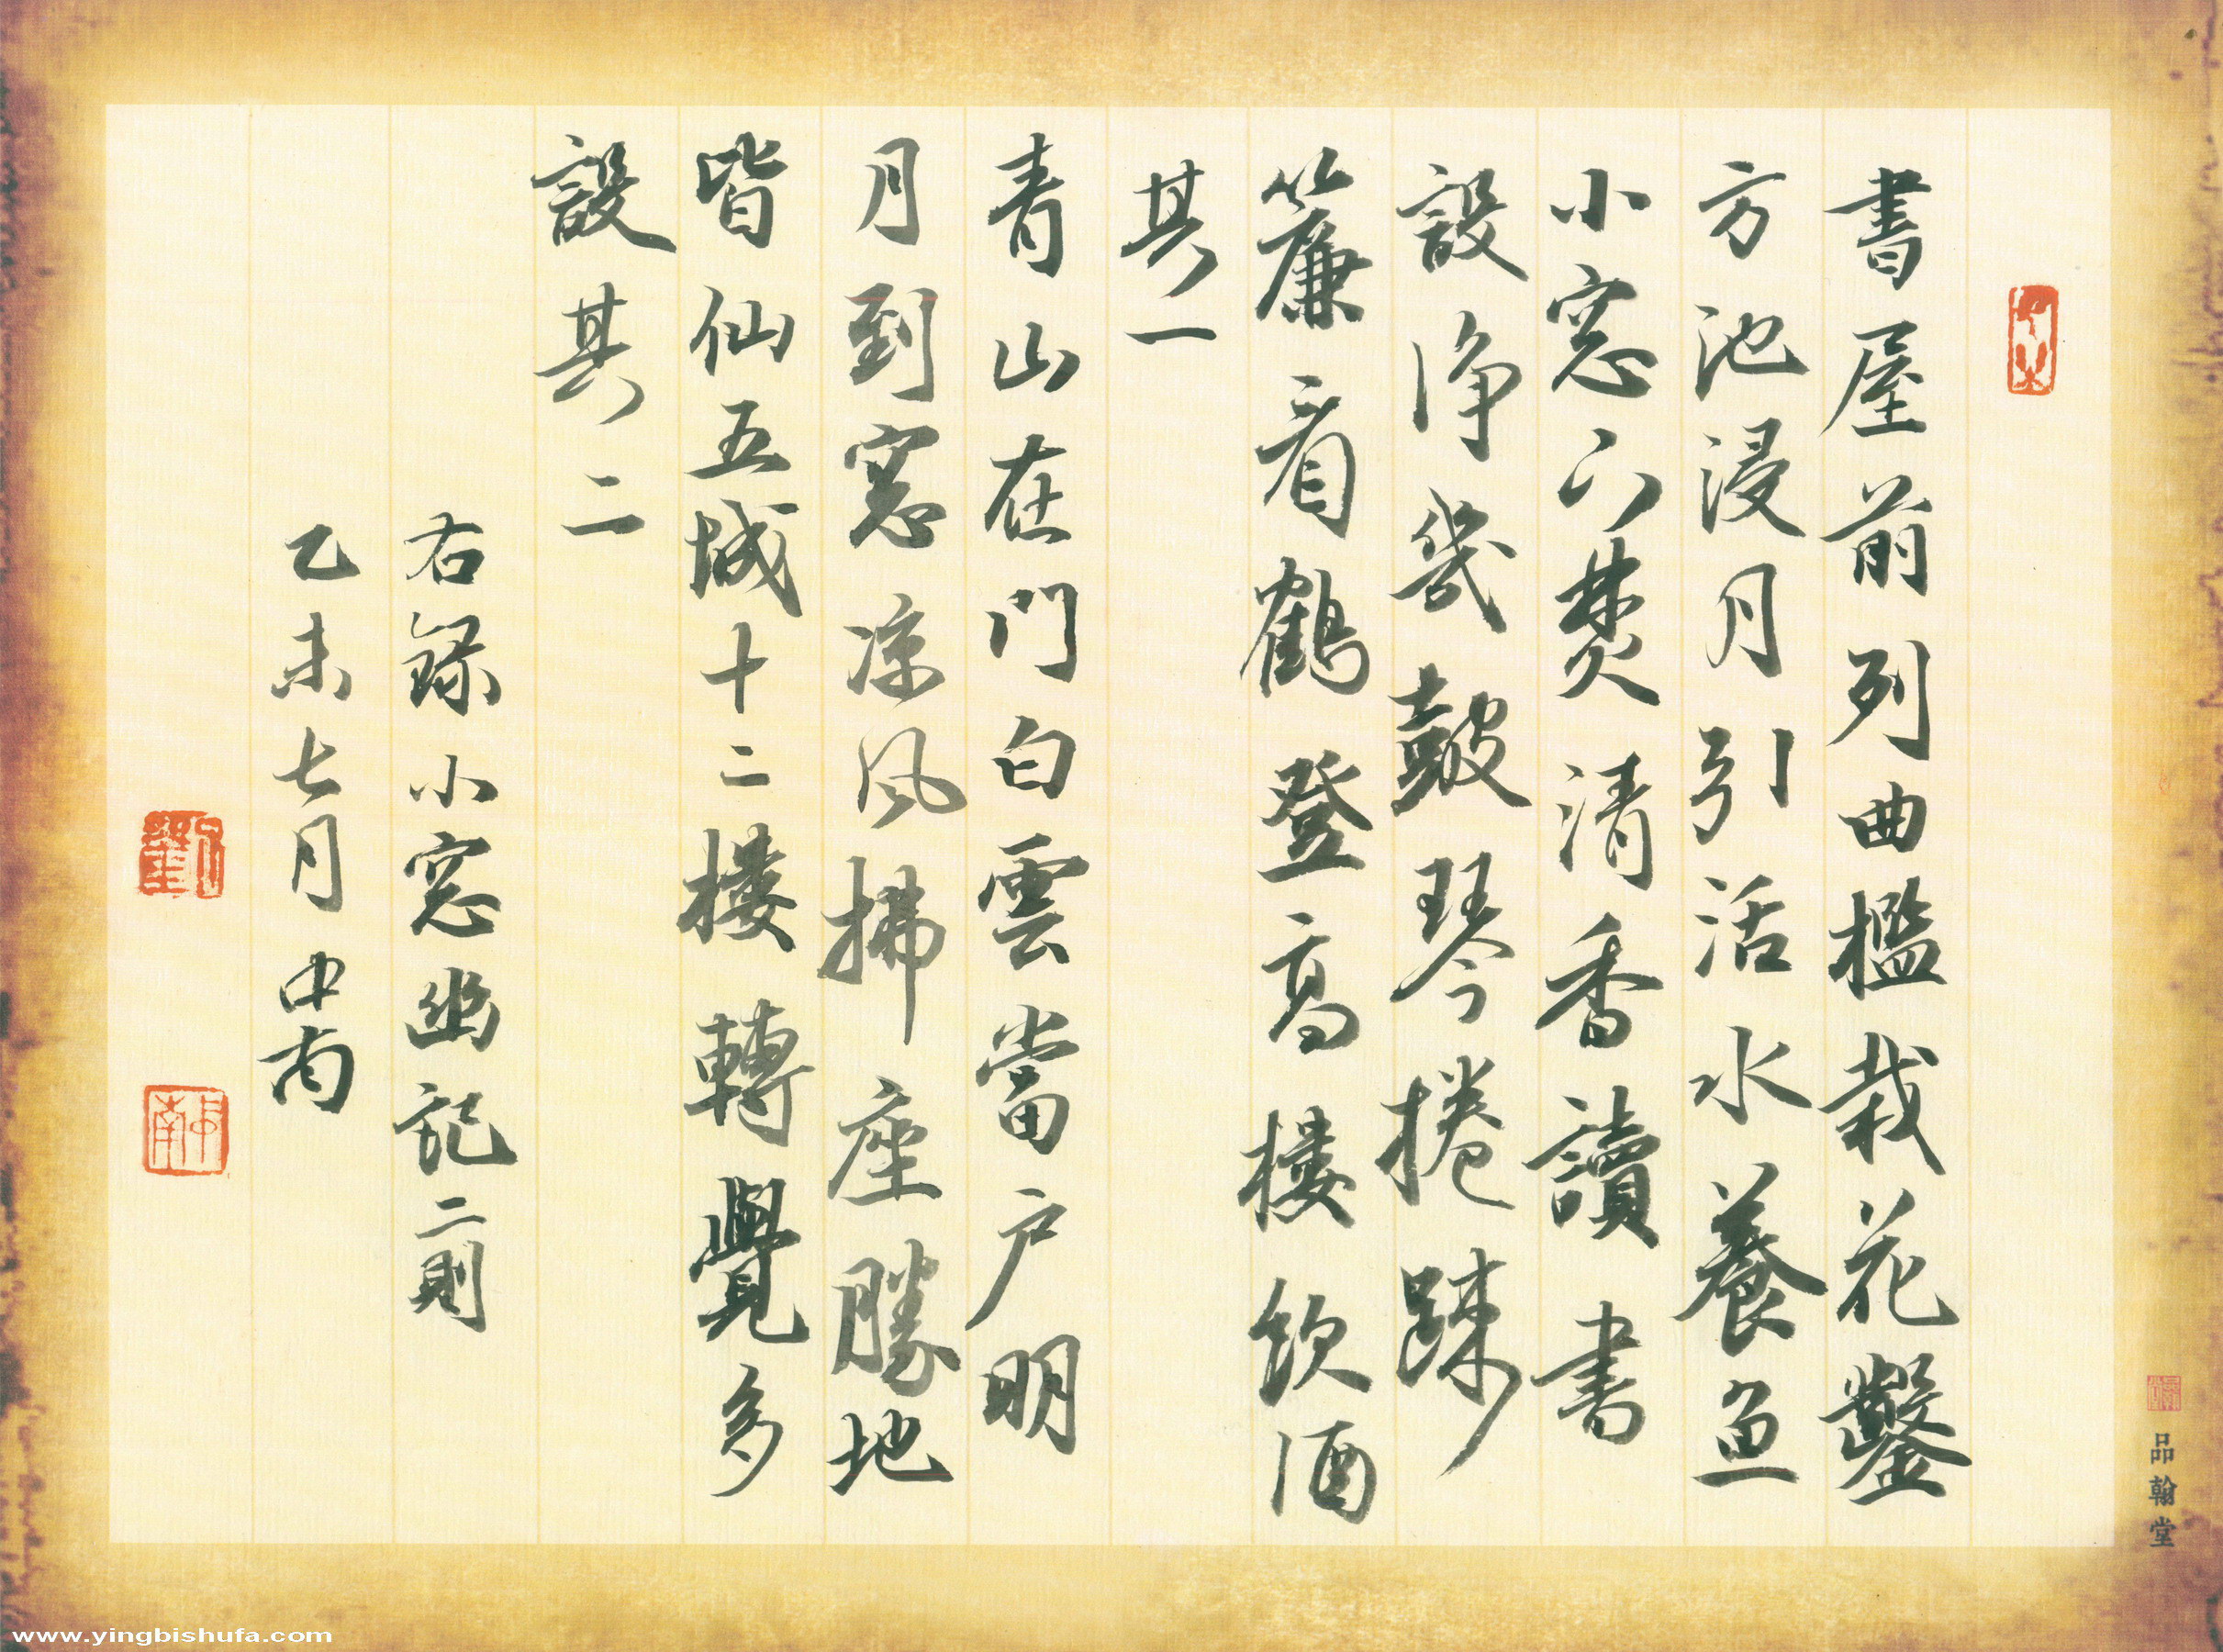 書屋前列曲檻栽花鑿
方池浸月引活水養魚
小窓下焚清香讀書
設净幾鼓琴捲疎
簾看鶴登高樓飲酒
其一
青山在門白雲當户明
月到窓凉風拂座勝地
皆仙五城十二樓轉覺多
設其二
右録小窓幽記二則
乙未七月中南
品翰堂
www.yingbishufa.com